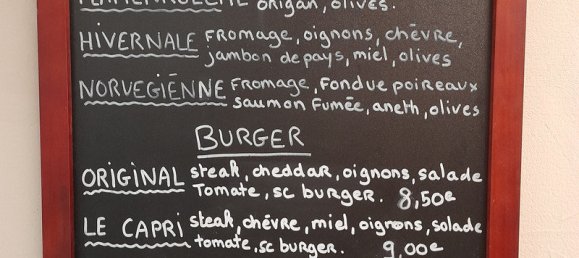 origan, olives.
HIVERNALE fromage, oignons, chèvre,
jambon de pays, miel, olives
NORVEGIËNNE fromage, fondue poireaux
saumon fumée, aneth, olives
BURGER
ORIGINAL steak, cheddar, oignons, salade
Tomate, sc burger. 8,50€
LE CAPRI steak, chévre, miel, oignons, salade
tomate, sc burger. 9,00€